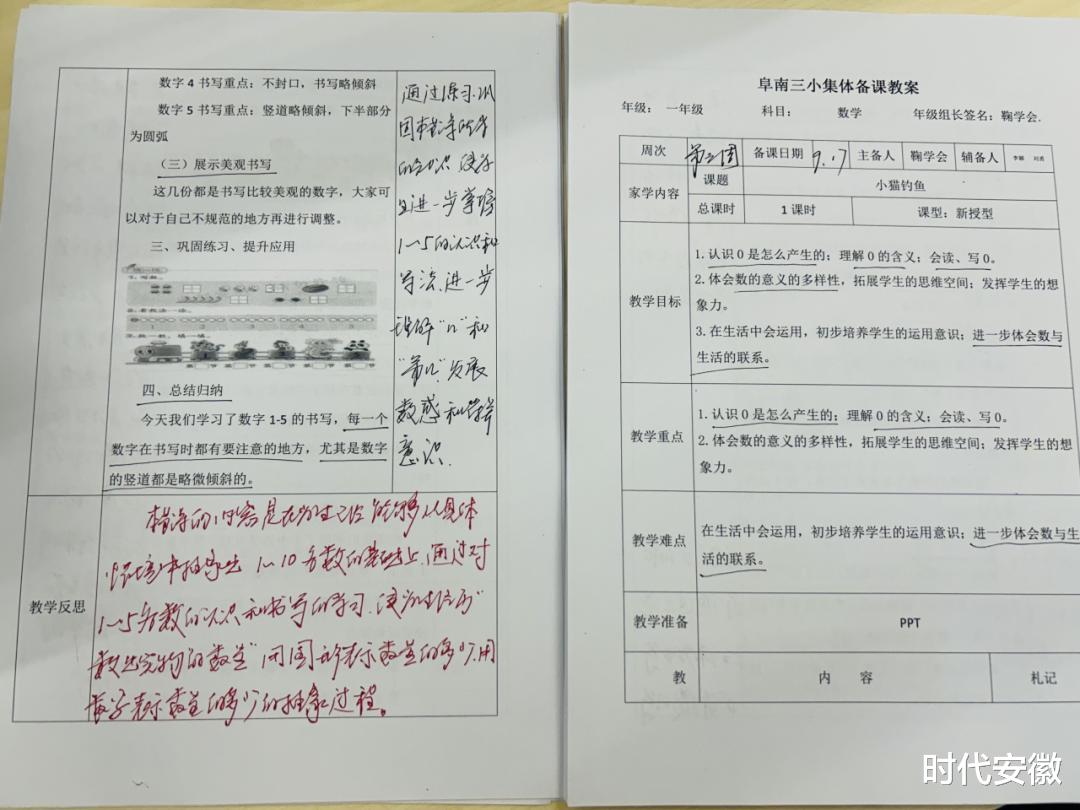 数字 4 书写重点：不封口，书写略倾斜
数字 5 书写重点：竖道略倾斜，下半部分
为圆弧
（三）展示美观书写
这几份都是书写比较美观的数字，大家可
以对于自己不规范的地方再进行调整。
三、巩固练习、提升应用
四、总结归纳
今天我们学习了数字 1-5 的书写，每一个
数字在书写时都有要注意的地方，尤其是数字
的竖道都是略微倾斜的。
通过练习,巩
固本节课所学
的知识,使学
生进一步掌握
1~5的认识和
写法,进一步
理解"几"和
"第几",发展
数感和符号
意识.
教学反思
本节课的内容是在学生已经能够从具体
情境中抽象出 1~10各数的基础上,通过对
1~5各数的认识和书写的学习,使学生经历"
数出实物的数量" 用圆形表示数量的多少,用
数字表示数量的多少的抽象过程。
阜南三小集体备课教案
年级： 一年级 科目： 数学 年级组长签名：鞠学会.
周次 第三周 备课日期 9.17 主备人 鞠学会 辅备人
家学内容 课题 小猫钓鱼
总课时 1 课时 课型：新授型
教学目标
1. 认识 0 是怎么产生的；理解 0 的含义；会读、写 0。
2. 体会数的意义的多样性，拓展学生的思维空间；发挥学生的想
象力。
3. 在生活中会运用，初步培养学生的运用意识；进一步体会数与
生活的联系。
教学重点
1. 认识 0 是怎么产生的；理解 0 的含义；会读、写 0。
2. 体会数的意义的多样性，拓展学生的思维空间；发挥学生的想
象力。
教学难点
在生活中会运用，初步培养学生的运用意识；进一步体会数与生
活的联系。
教学准备 PPT
教 内 容 札记
时代安徽